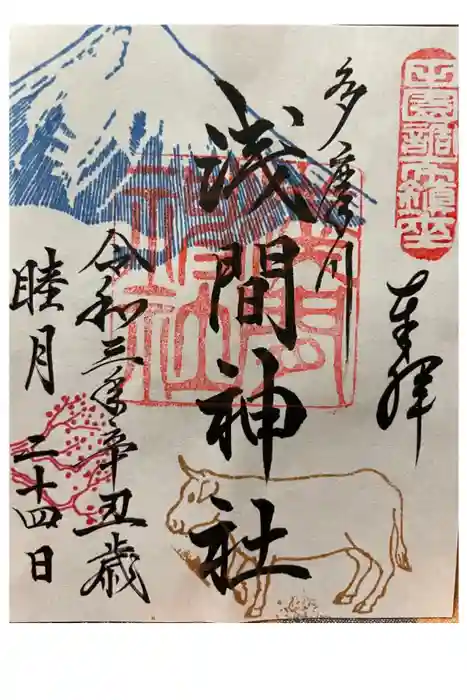 田園調布鎮座
奉拝
多摩川
浅間神社
浅間
神社
令和三年辛丑歳
睦月二十四日